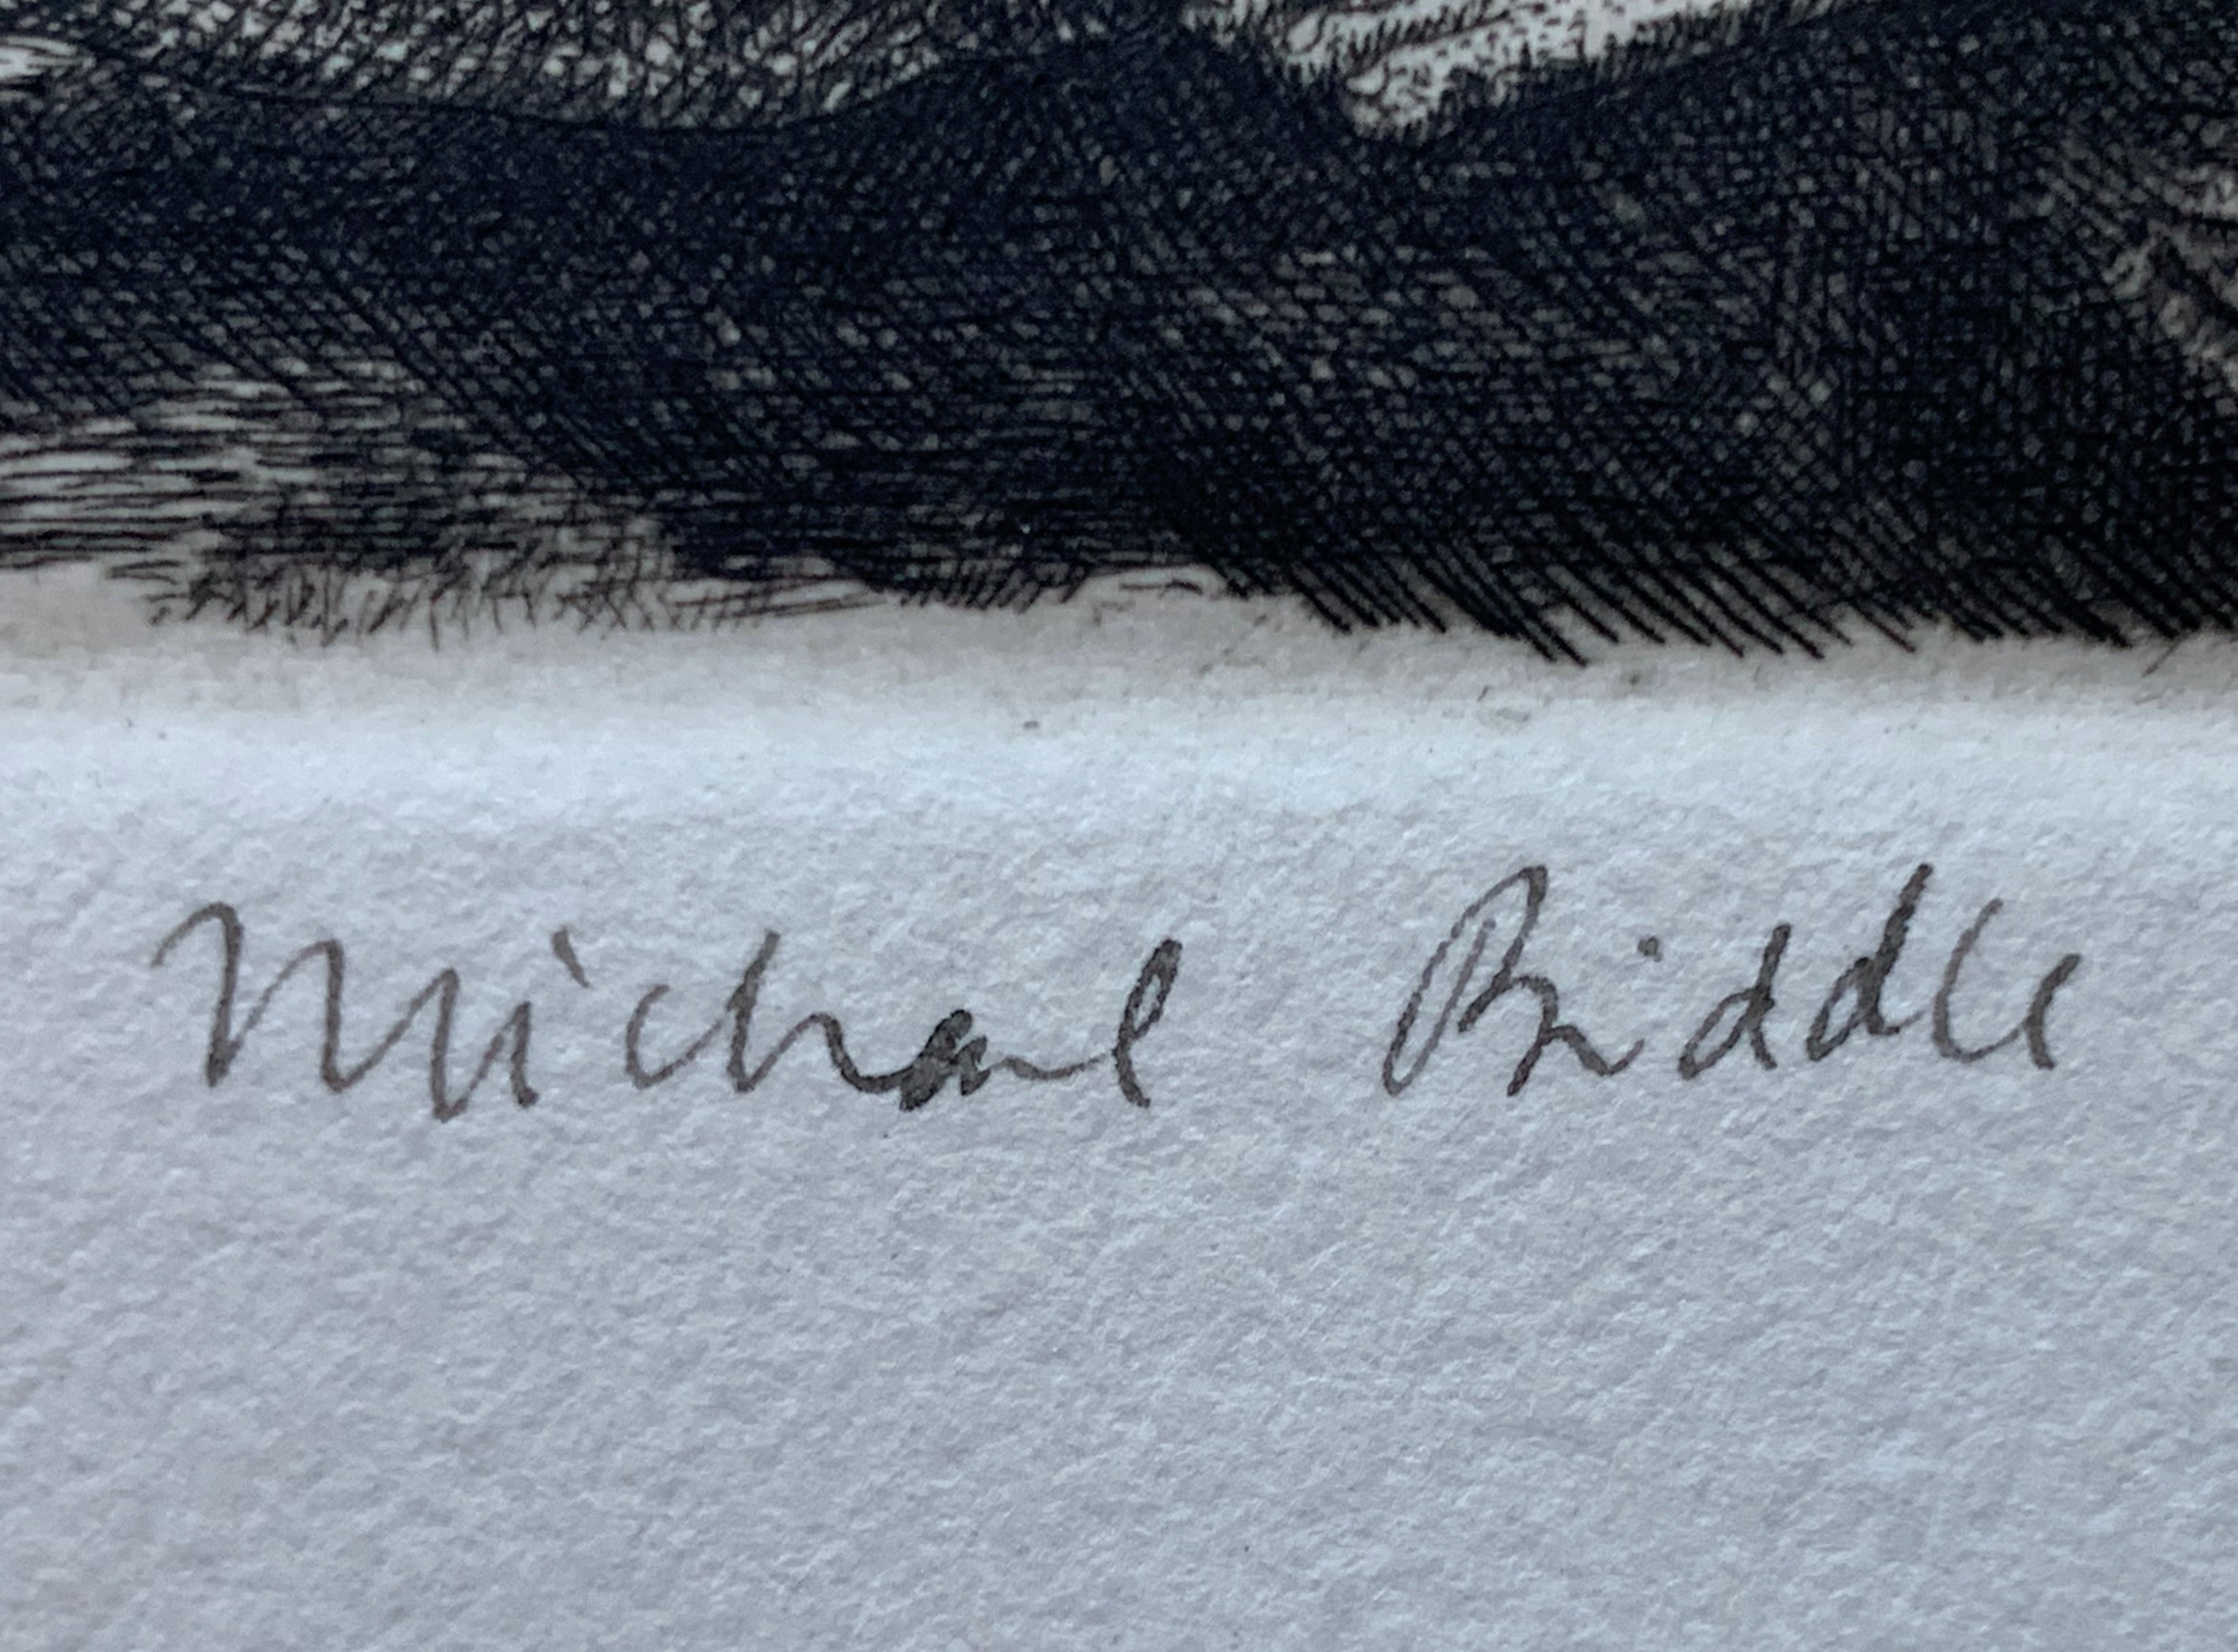 Michael Biddle